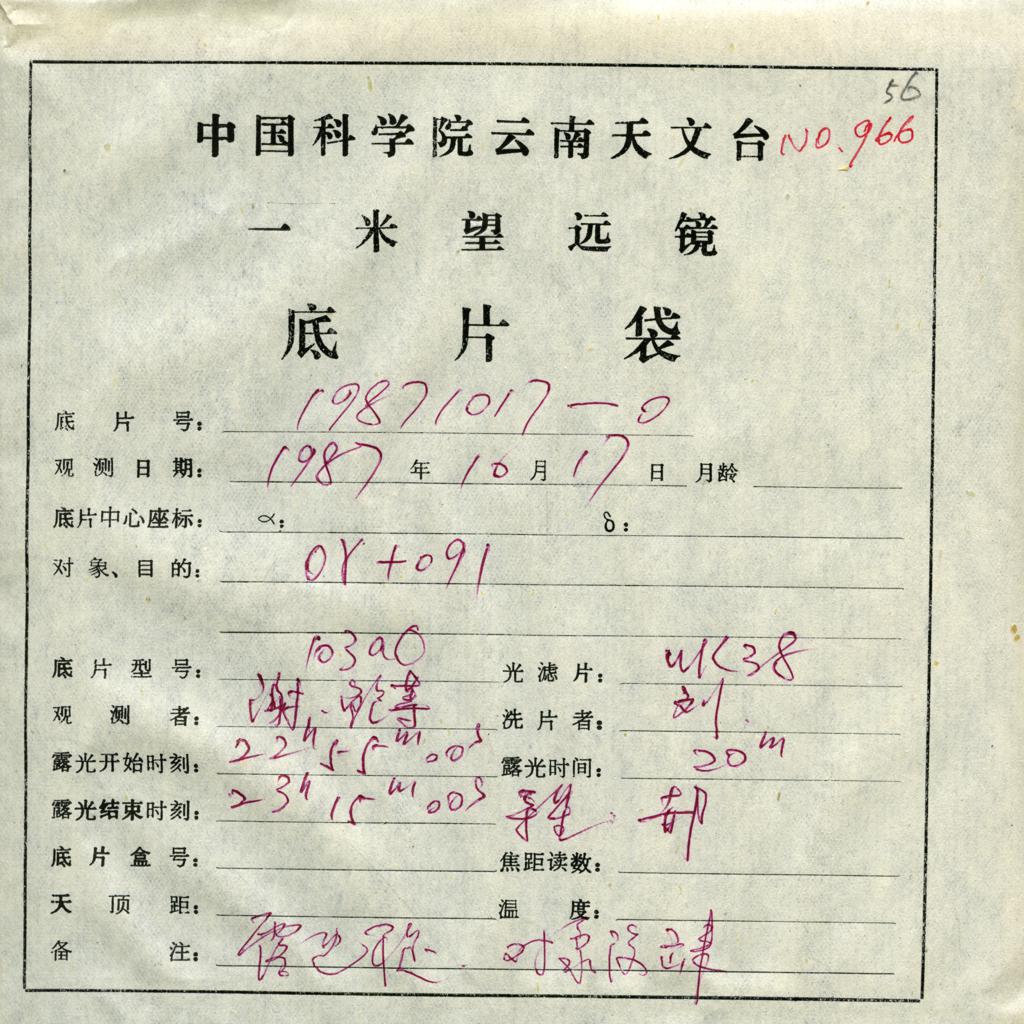 56
中国科学院云南天文台 NO.966
一米望远镜
底片袋
底片号: 19871017-0
观测日期: 1987 年 10 月 17 日 月龄
底片中心座标: α: δ:
对象、目的: OY+091
底片型号: 103aO 光滤片: UK38
观测者: 谢、鲍等 洗片者: 刘
露光开始时刻: 22h 55m 00s 露光时间: 20m
露光结束时刻: 23h 15m 00s
底片盒号: 焦距读数:
天顶距: 温度:
备注: 对象没